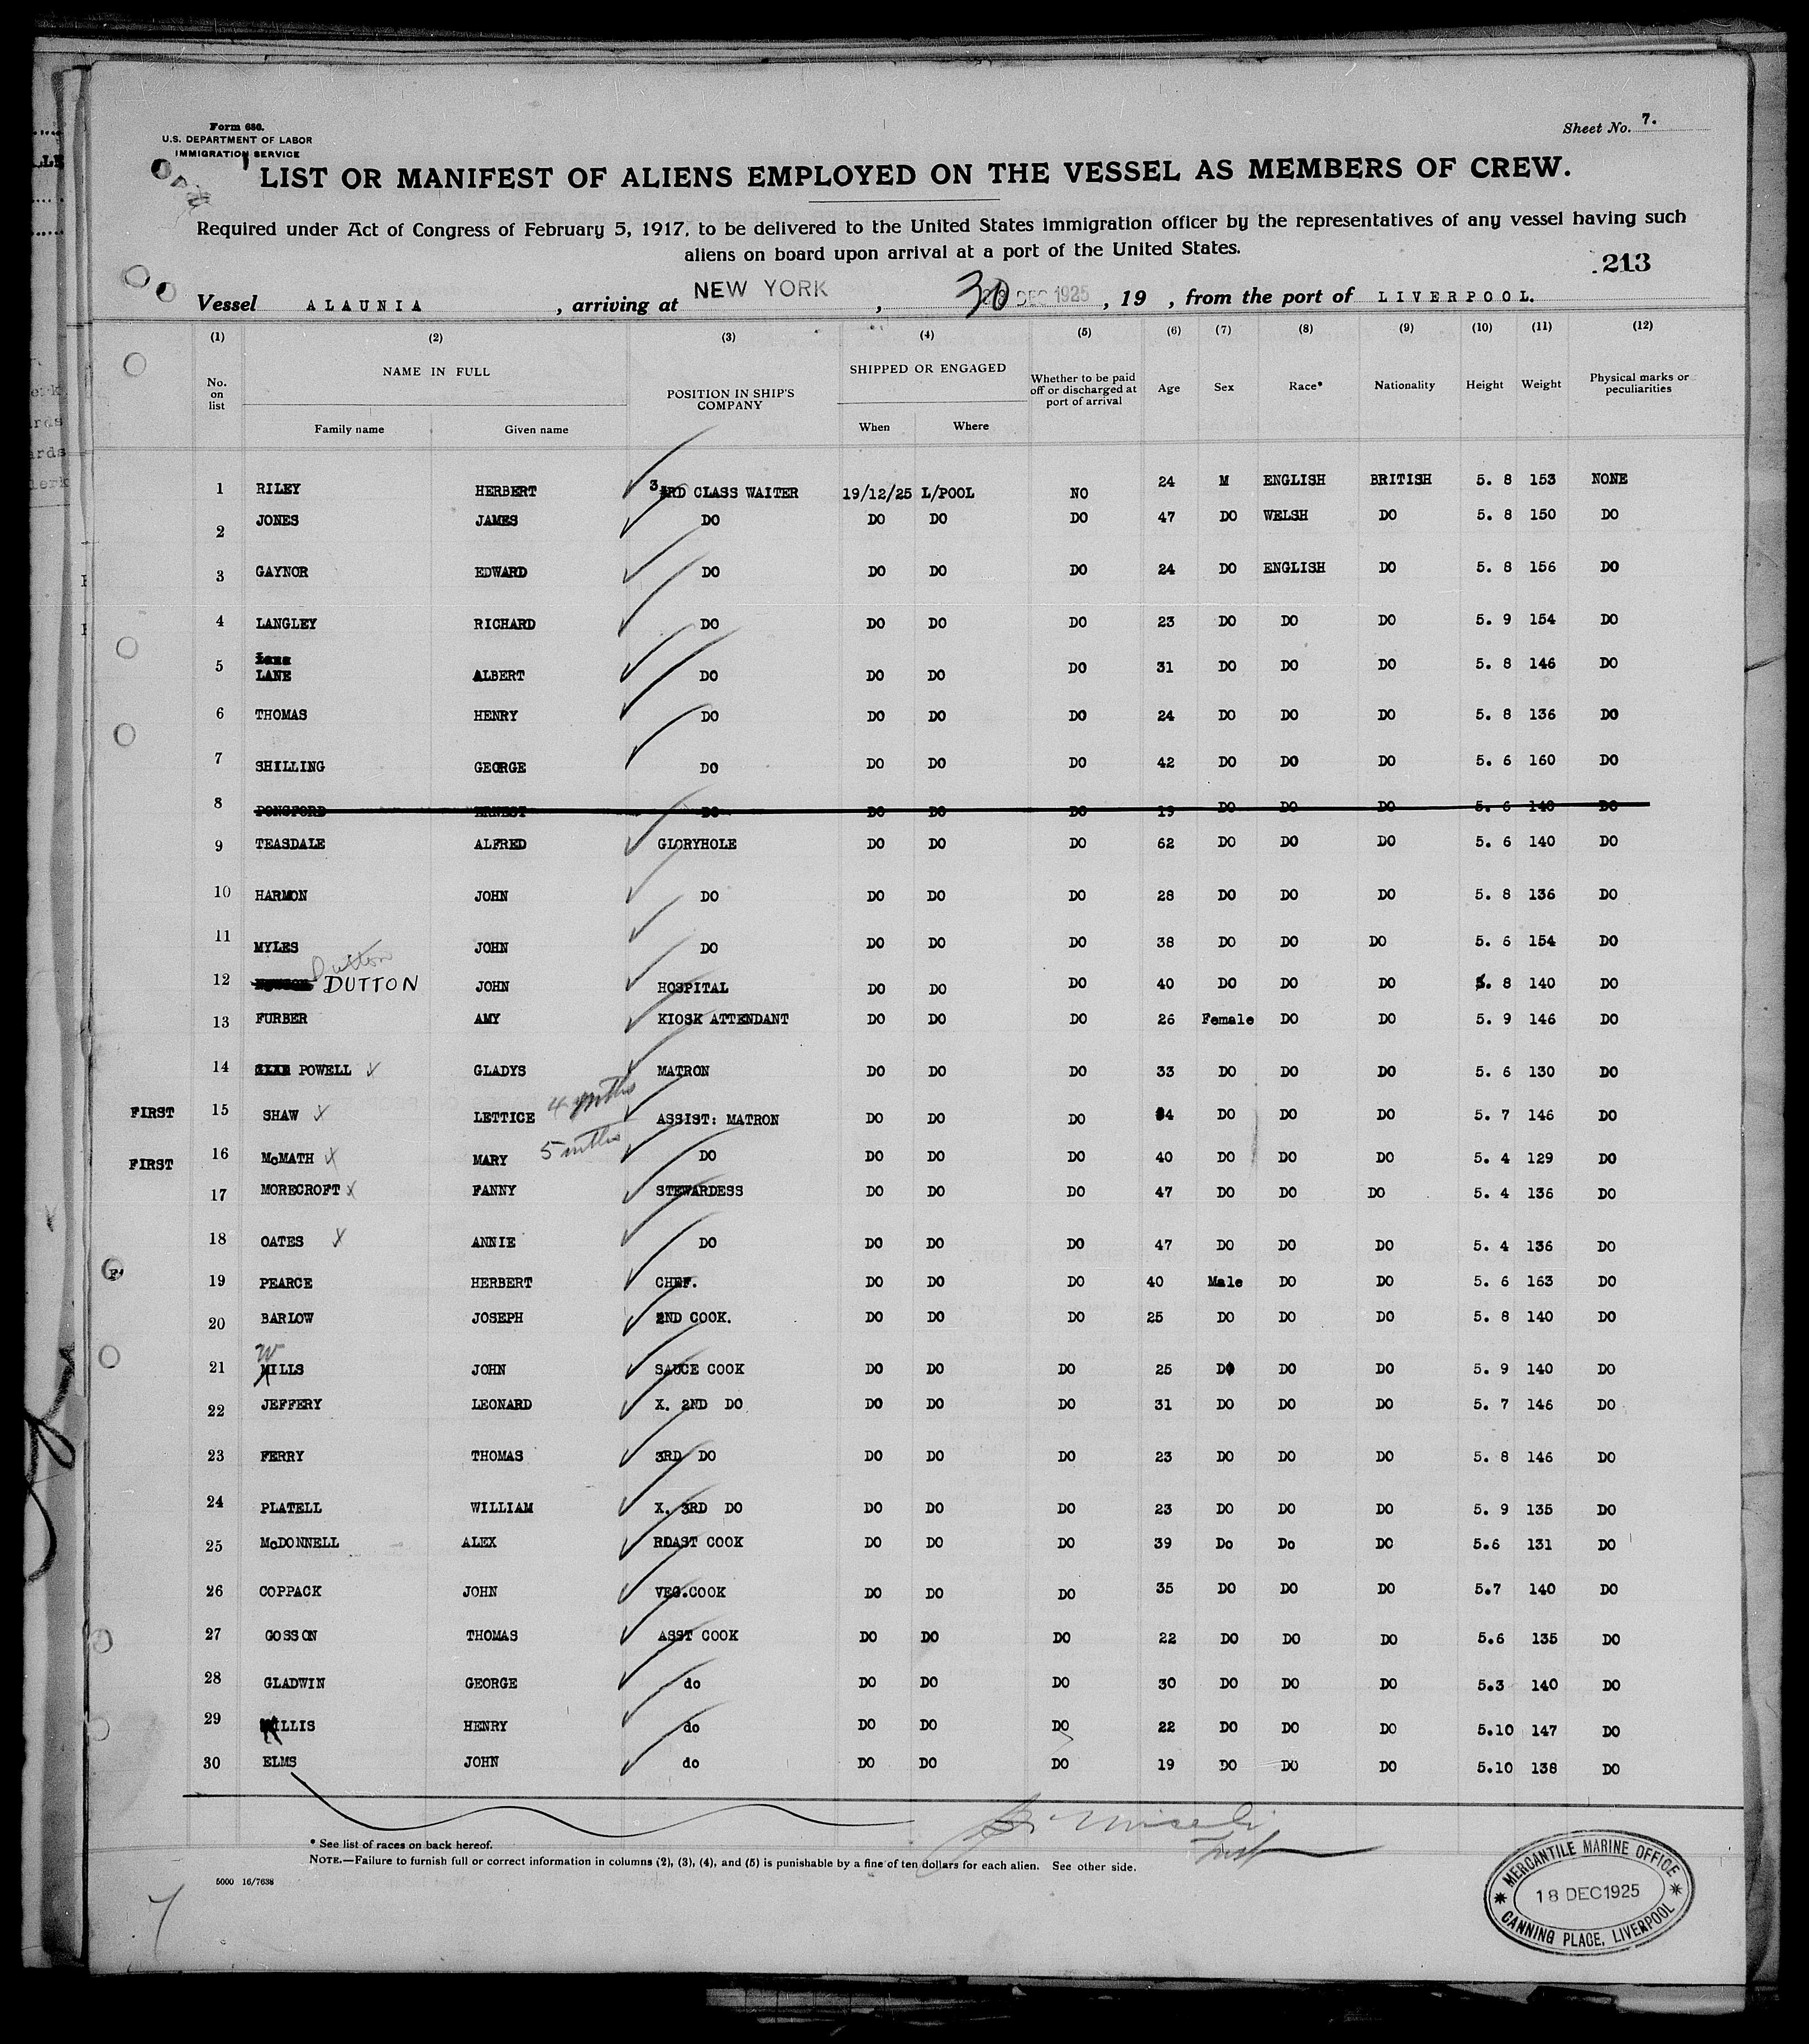 Form 680.
U.S. DEPARTMENT OF LABOR
IMMIGRATION SERVICE
Sheet No. 7.
LIST OR MANIFEST OF ALIENS EMPLOYED ON THE VESSEL AS MEMBERS OF CREW.
Required under Act of Congress of February 5, 1917, to be delivered to the United States immigration officer by the representatives of any vessel having such
aliens on board upon arrival at a port of the United States.
213
Vessel ALAUNIA, arriving at NEW YORK, 30 DEC 1925, 19 , from the port of LIVERPOOL.
(1) (2) (3) (4) (5) (6) (7) (8) (9) (10) (11) (12)
No. on list NAME IN FULL Family name Given name POSITION IN SHIP'S COMPANY SHIPPED OR ENGAGED When Where Whether to be paid off or discharged at port of arrival Age Sex Race* Nationality Height Weight Physical marks or peculiarities
1 RILEY HERBERT 3RD CLASS WAITER 19/12/25 L/POOL NO 24 M ENGLISH BRITISH 5. 8 153 NONE
2 JONES JAMES DO DO DO DO 47 DO WELSH DO 5. 8 150 DO
3 GAYNOR EDWARD DO DO DO DO 24 DO ENGLISH DO 5. 8 156 DO
4 LANGLEY RICHARD DO DO DO DO 23 DO DO DO 5. 9 154 DO
5 LANE ALBERT DO DO DO DO 31 DO DO DO 5. 8 146 DO
6 THOMAS HENRY DO DO DO DO 24 DO DO DO 5. 8 136 DO
7 SHILLING GEORGE DO DO DO DO 42 DO DO DO 5. 6 160 DO
8 PONSFORD ERNEST DO DO DO DO 19 DO DO DO 5. 6 140 DO
9 TEASDALE ALFRED GLORYHOLE DO DO DO 62 DO DO DO 5. 6 140 DO
10 HARMON JOHN DO DO DO DO 28 DO DO DO 5. 8 136 DO
11 MYLES JOHN DO DO DO DO 38 DO DO DO 5. 6 154 DO
Dutton
12 DUTTON JOHN HOSPITAL DO DO DO 40 DO DO DO 5. 8 140 DO
13 FURBER AMY KIOSK ATTENDANT DO DO DO 26 Female DO DO 5. 9 146 DO
14 POWELL GLADYS MATRON DO DO DO 33 DO DO DO 5. 6 130 DO
FIRST 15 SHAW LETTICE 4 mths ASSIST: MATRON DO DO DO 34 DO DO DO 5. 7 146 DO
FIRST 16 McMATH MARY 5 mths DO DO DO DO 40 DO DO DO 5. 4 129 DO
17 MORECROFT FANNY STEWARDESS DO DO DO 47 DO DO DO 5. 4 136 DO
18 OATES ANNIE DO DO DO DO 47 DO DO DO 5. 4 136 DO
19 PEARCE HERBERT CHEF. DO DO DO 40 Male DO DO 5. 6 163 DO
20 BARLOW JOSEPH 2ND COOK. DO DO DO 25 DO DO DO 5. 8 140 DO
W
21 MILLS JOHN SAUCE COOK DO DO DO 25 DO DO DO 5. 9 140 DO
22 JEFFERY LEONARD X. 2ND DO DO DO DO 31 DO DO DO 5. 7 146 DO
23 FERRY THOMAS 3RD DO DO DO DO 23 DO DO DO 5. 8 146 DO
24 PLATELL WILLIAM X. 3RD DO DO DO DO 23 DO DO DO 5. 9 135 DO
25 McDONNELL ALEX ROAST COOK DO DO DO 39 Do Do DO 5.6 131 DO
26 COPPACK JOHN VEG.COOK DO DO DO 35 DO DO DO 5.7 140 DO
27 GOSSON THOMAS ASST COOK DO DO DO 22 DO DO DO 5.6 135 DO
28 GLADWIN GEORGE do DO DO DO 30 DO DO DO 5.3 140 DO
29 WILLIS HENRY do DO DO DO 22 DO DO DO 5.10 147 DO
30 ELMS JOHN do DO DO DO 19 DO DO DO 5.10 138 DO
* See list of races on back hereof.
NOTE.—Failure to furnish full or correct information in columns (2), (3), (4), and (5) is punishable by a fine of ten dollars for each alien. See other side.
5000 16/7638
7
MERCANTILE MARINE OFFICE
18 DEC 1925
CANNING PLACE, LIVERPOOL